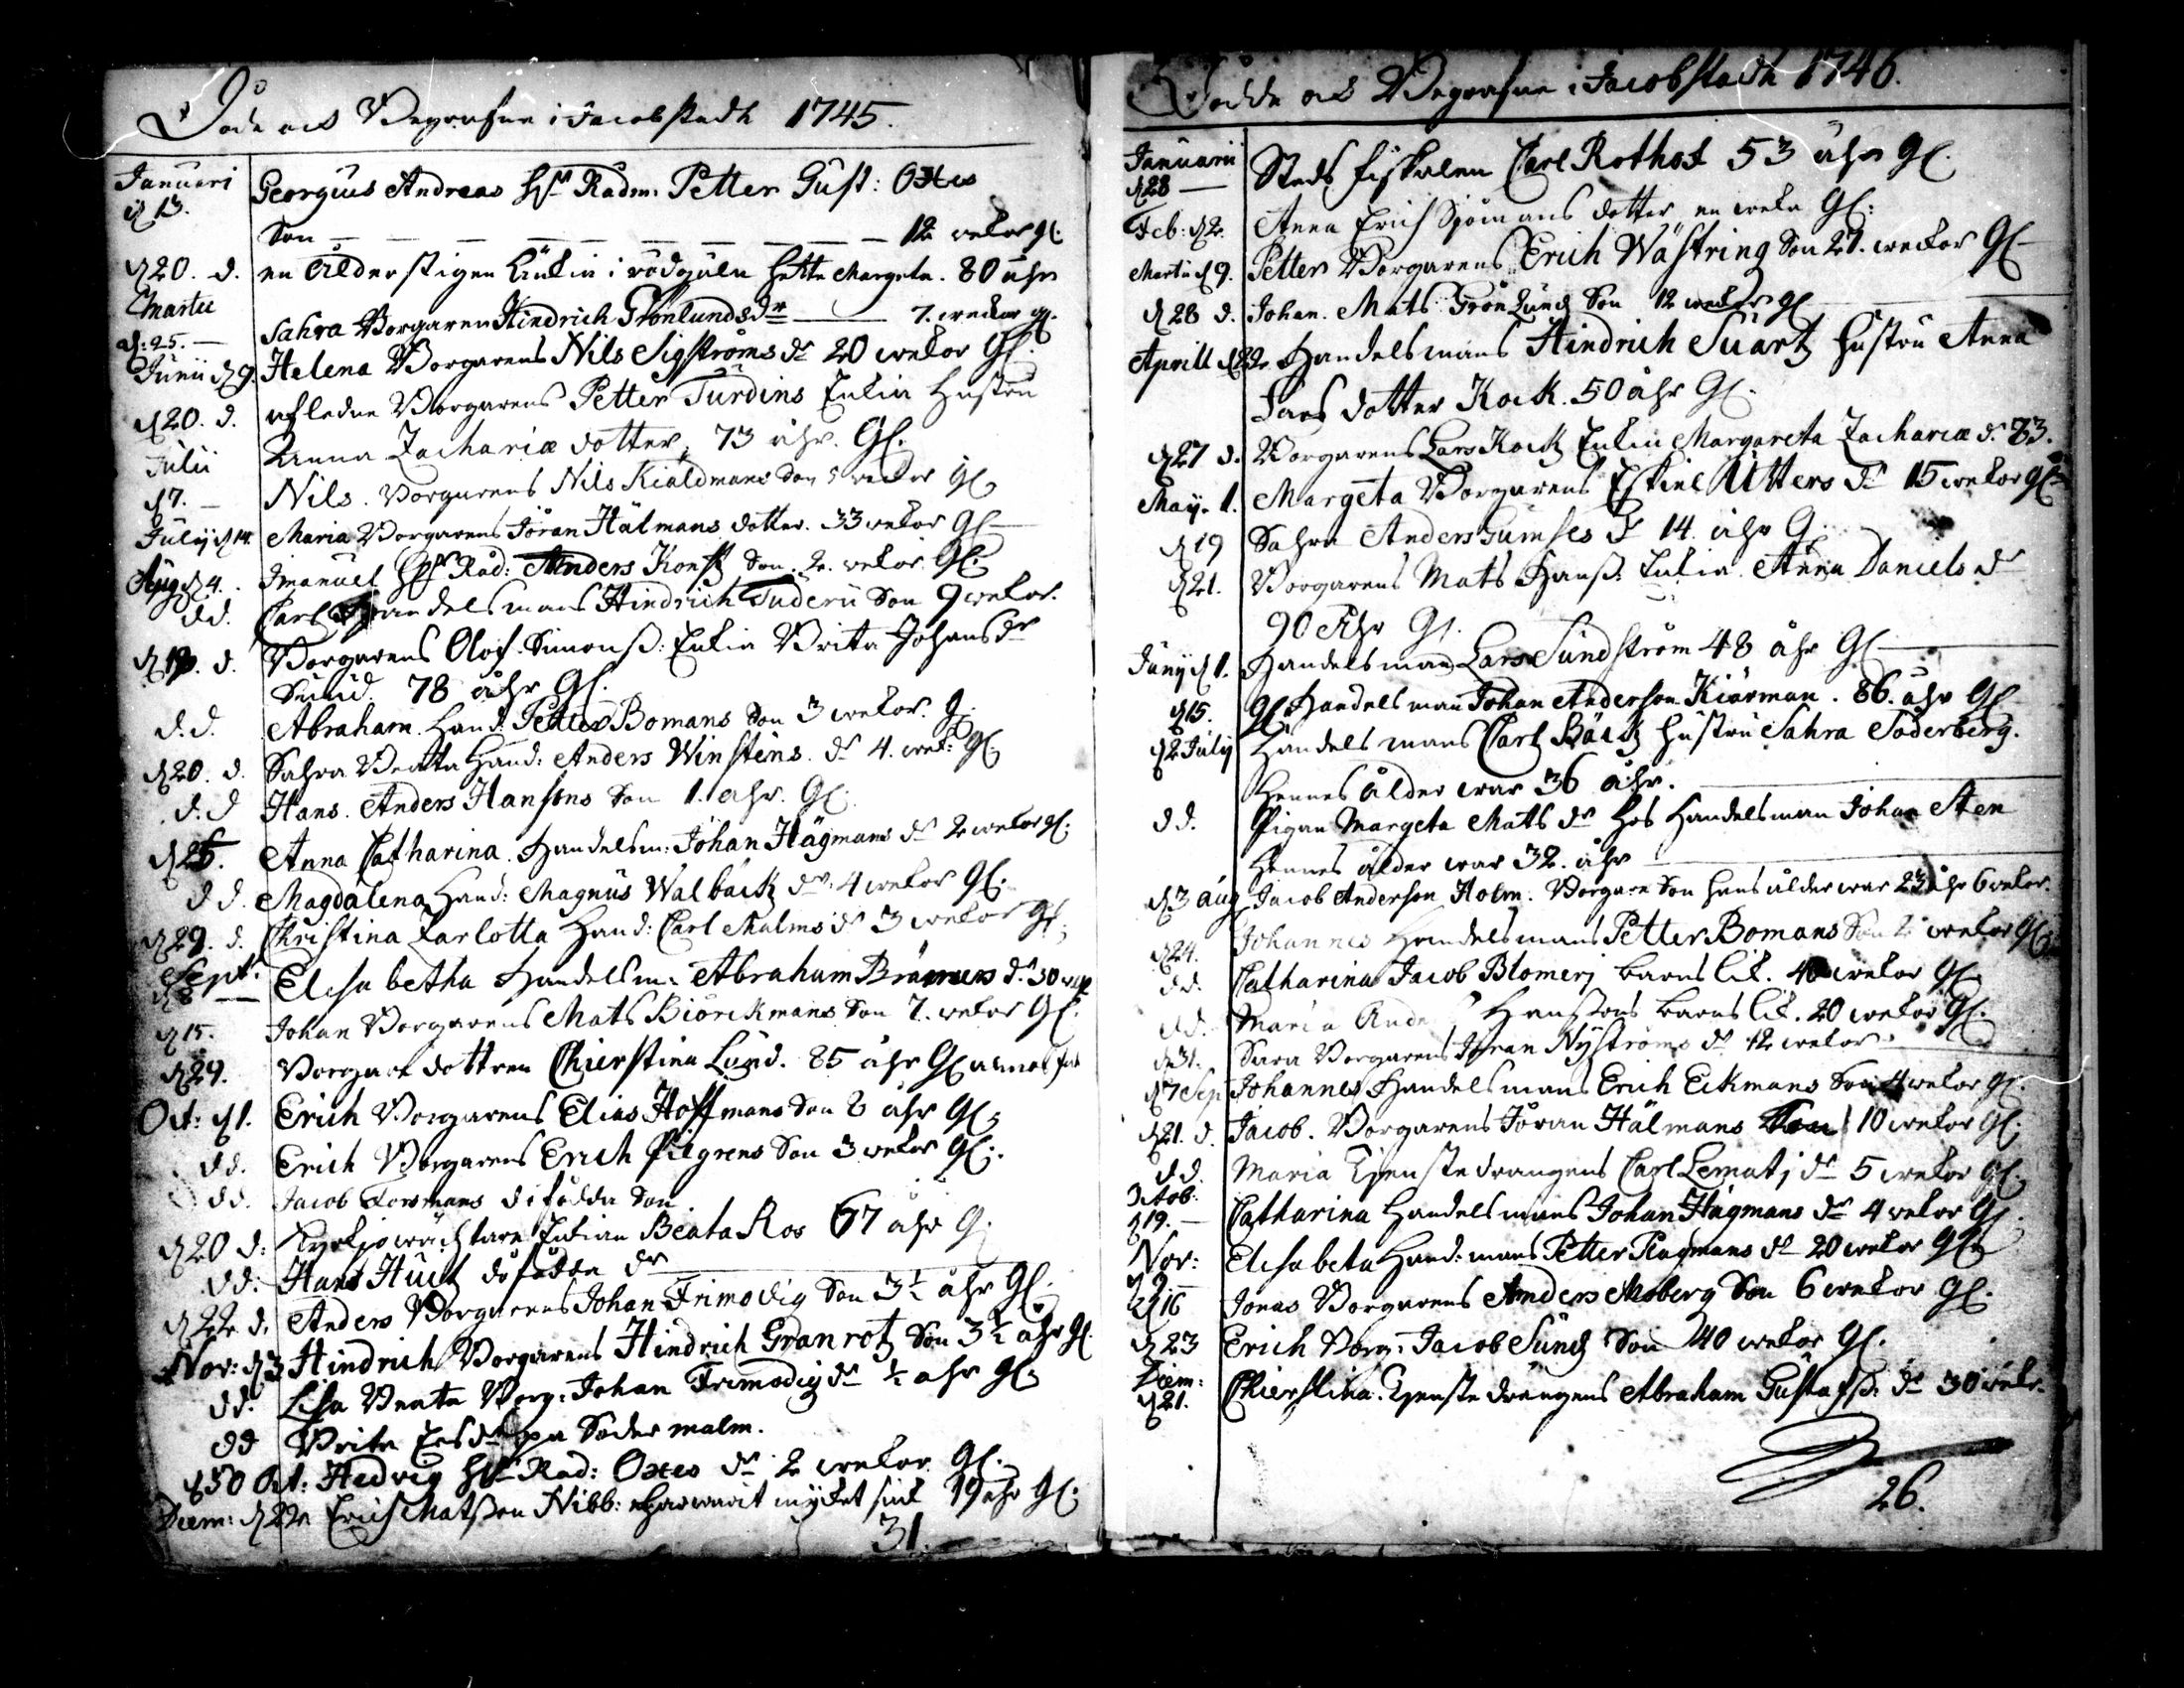 Döde och Begrafne i Jacobstadh 1745.
Januari
d 13. Georgius Andreas hr Rådm: Petter Gust: Oxtes
Son — — — — — — — 12 wekor gl:
d 20. d. en ålderstigen Enkia i rödguln hette Margeta. 80 åhr
Martii
d: 25. — Sahra Borgaren Hindrich Grönlunds dr — 7. weckor gl.
Junii d 9. Helena Borgarens Nils Sigströms dr 20 wekor Gl.
d 20. d. afledne Borgarens Petter Turdins Enkia Hustru
Anna Zachariæ dotter, 73 åhr. Gl.
Julii
d 7. — Nils. Borgarens Nils Kiäldmans Son 5 wekor gl.
Julij d 14. Maria Borgarens Jöran Hälmans dotter. 33 wekor Gl
Aug d 4. Imanuel hr Råd: Anders Konst Son. 2. wekor. Gl.
d d. Carl Handelsmans Hindrich Tuderu Son 9 wekor.
d. Borgarens Olof Simonss: Enkia Brita Johans dr
Sund. 78 åhr Gl.
d. d. Abraham Hand: Petter Bomans Son 3 wekor. g.
d 20. d. Sahra Beata Hand: Anders Winstens. dr 4. wek: gl.
d. d Hans. Anders Hansons Son 1. ahr. Gl.
d 25. Anna Catharina. Handelsm: Johan Hägmans dr 2 wekor gl.
d d. Magdalena Hand: Magnus Walbäck dr. 4 wekor Gl.
d 29. d. Christina Zarlotta Hand: Carl Malms dr 3 wekor gl.
Sept:
d 8 — Elisabetha Handelsm: Abraham dr. 30 wek
d 15. Johan Borgarens Mats Biörckmans Son 7. wekor Gl.
d 29. Borgare dottren Chierstina Lund. 85 åhr Gl
Oct: d 1. Erich Borgarens Elias Hoffmans Son 8 åhr Gl,
d d. Erich Borgarens Erich Pilgrens Son 3 wekor Gl:.
d d. Jacob Forsmans döfödda Son
d 20 d: Kyrkiowächtare Enkian Beata Ros 67 åhr G.
d d: Hans döfödda dr
d 22 d. Anders Borgarens Johan Frimodig Son 3½ åhr Gl.
Nov: d 3 Hindrich Borgarens Hindrich Granrot Son 3½ åhr gl.
d d. Lisa Beata Borg: Johan Frimodig dr ½ ahr gl.
d d Brita Ers dr på Södermalm.
d 30 Oct: Hedvig hr Råd: Oxtes dr 2 wekor. Gl.
Decem: d 22 Erich Matsson Nibb: harwarit mycket siuk 19 åhr gl.
31.
Födde och Begrafne i Jacobstadh 1746.
Januarii
d 28 — Stads fiskalen Carl Rothof 53 åhr gl.
Feb: d 2. Anna Erich Sjömans dotter en weka Gl:
Martii d 9. Petter Borgarens Erich Wästring Son 27. weckor Gl —
d 28 d. Johan. Mats Grönlund Son 12 wekor gl
Aprill d 22 Handelsmans Hindrich Suartz hustru Anna
Lars dotter Kock. 50 åhr Gl.
d 27 d. Borgarens Lars Kock Enkia Margareta Zachariæ dr. 83.
May. 1. Margeta Borgarens Eskiel Utters dr 15 wekor gl
d 19 Sahra Anders Sumses dr 14. åhr G.
d 21. Borgarens Mats Hanss: Enkia. Anna Daniels dr
90 Åhr Gl.
Juny d 1. Handelsman Lars Sundström 48 åhr Gl
d 15. gl Handelsman Johan Anderson Kiörman. 86. åhr Gl
d 2 July Handelsmans Carl Bäck hustru Sahra Söderberg.
Hennes ålder war 36 åhr.
d d. Pigan Margeta Mats dr hos Handelsman Johan Sten
Hennes ålder war 32. åhr
d 3 aug Jacob Anderson Holm. Borgare Son hans ålder war 23 åhr 6 wekor.
d 24. Johannes Handelsmans Petter Bomans Son 2 wekor Gl
d d. Catharina Jacob Blomerj barns lik. 40 wekor gl.
d d. Maria Ande Hanssons barns lik. 20 wekor Gl.
d 31. Sara Borgarens Jöran Nyströms dr 12 wekor
d 7 Sep Johannes Handelsmans Erich Eckmans Son 4 wekor gl.
d 21. d. Jacob. Borgarens Jöran Hälmans Son 10 wekor Gl.
d d. Maria Tjenstedrängens Carl Lematj dr 5 wekor gl.
Octob:
d 19. — Catharina Handelsmans Johan Hägmans dr 4 wekor Gl.
Nov:
d 9 — Elisabeta Hand:mans Petter Plagmans dr 20 wekor Gl
d 16 Jonas Borgarens Anders Moberg Son 6 wekor gl.
d 23 Erich Borg: Jacob Sund Son 40 wekor Gl.
Decem:
d 21. Chierstina. Tjenstedrängens Abraham Gustafss: dr 30 wek.
26.